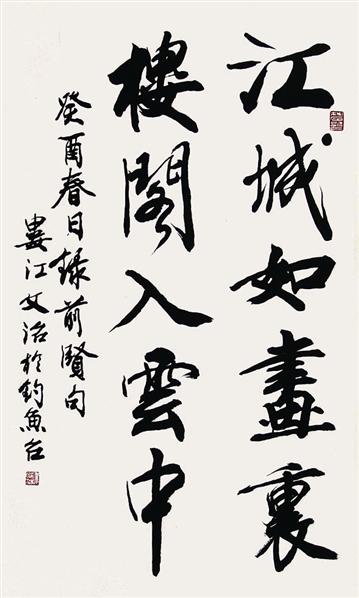 江城如畫裏
樓閣入雲中
癸酉春日録前賢句
婁江文治於釣魚台